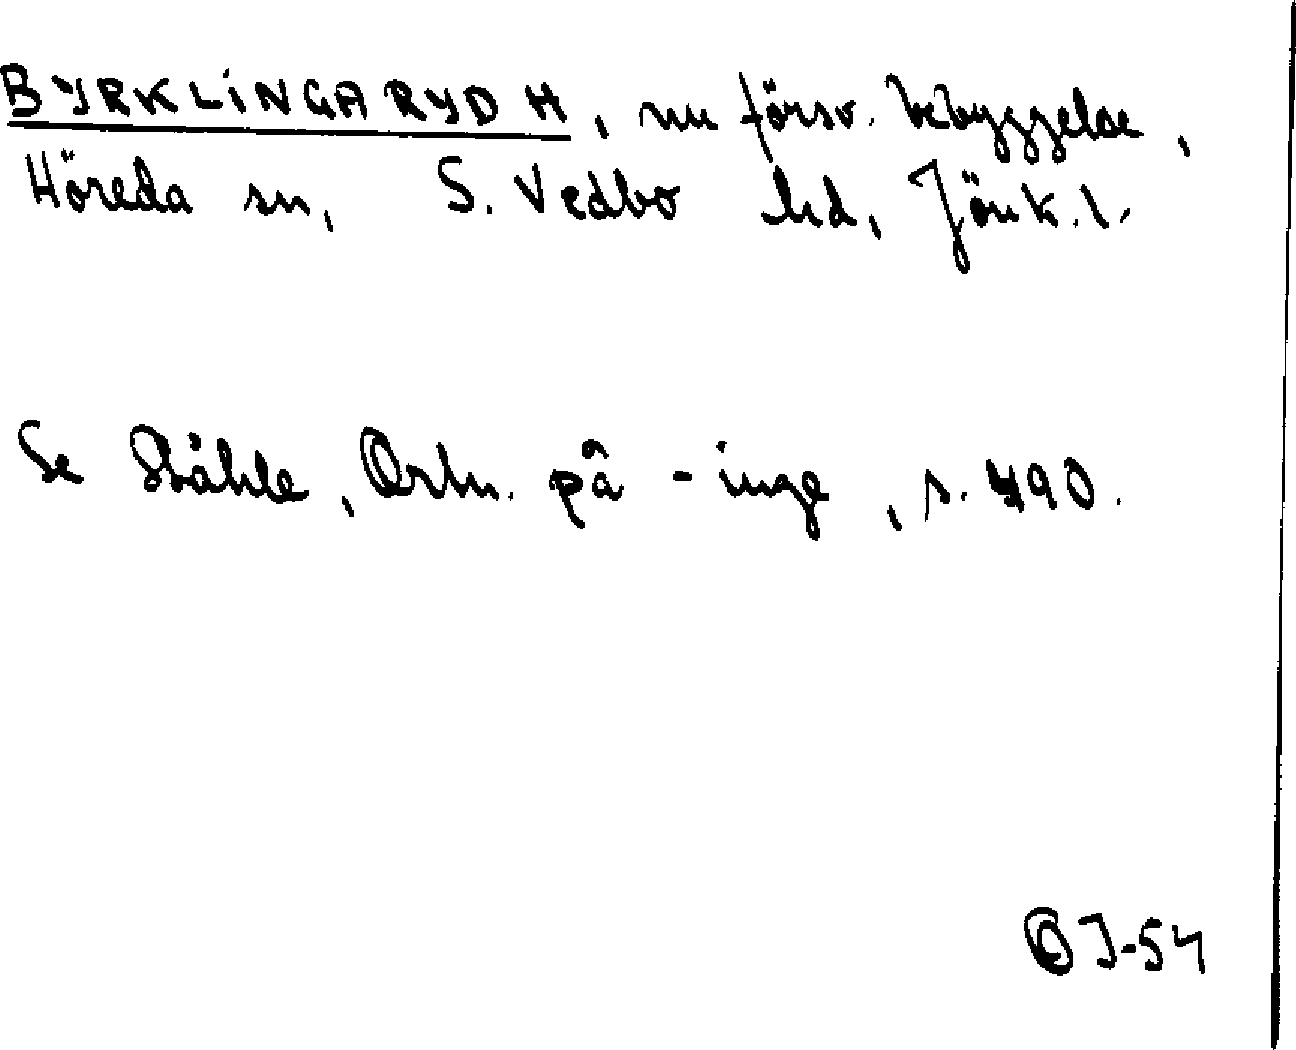 BYRKLINGARYDH, nu försv. bebyggelse,
Höreda sn, S. Vedbo hd, Jönk.l.
Se Ståhle, Ortn. på -inge, s. 490.
OJ-54